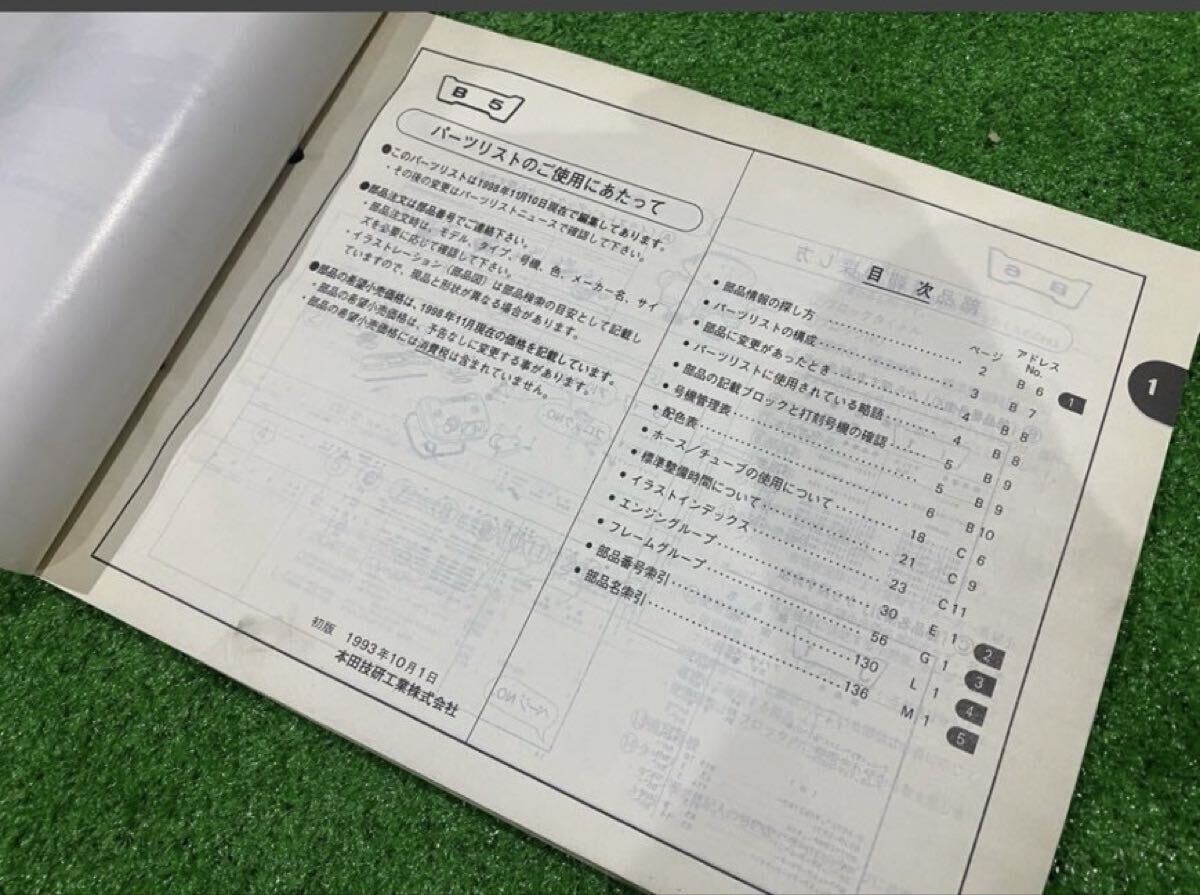 B 5
パーツリストのご使用にあたって
●このパーツリストは1998年11月10日現在で編集してあります。
・その後の変更はパーツリストニュースで確認して下さい。
●部品注文は部品番号でご連絡下さい。
・部品注文時は、モデル、タイプ、号機、色、メーカー名、サイ
ズを必要に応じて確認して下さい。
・イラストレーション（部品図）は部品検索の目安として記載し
ていますので、現品と形状が異なる場合があります。
●部品の希望小売価格は、1998年11月現在の価格を記載しています。
・部品の希望小売価格は、予告なしに変更する事があります。
・部品の希望小売価格には消費税は含まれていません。
初版 1993年10月1日
本田技研工業株式会社
目 次
ページ アドレスNo.
● 部品情報の探し方 2 B 6 1
● パーツリストの構成 3 B 7
● 部品に変更があったとき 4 B 8
● パーツリストに使用されている略語 4 B 8
● 部品の記載ブロックと打刻号機の確認 5 B 9
● 号機管理表 5 B 9
● 配色表 6 B 10
● ホース／チューブの使用について 18 C 6
● 標準整備時間について 21 C 9
● イラストインデックス 23 C 11
● エンジングループ 30 E 1 2
● フレームグループ 56 G 1 3
● 部品番号索引 130 L 1 4
● 部品名索引 136 M 1 5
1